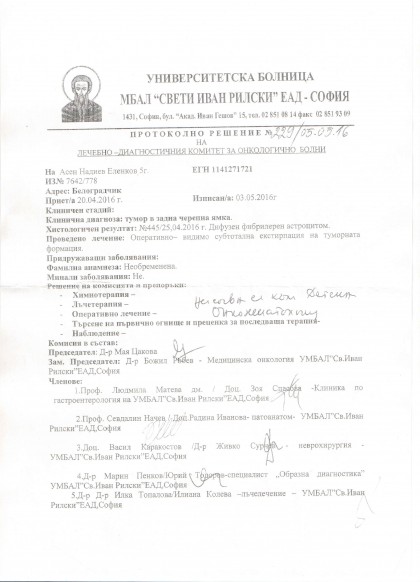 УНИВЕРСИТЕТСКА БОЛНИЦА
МБАЛ "СВЕТИ ИВАН РИЛСКИ" ЕАД - СОФИЯ
1431, София, бул. "Акад. Иван Гешов" 15, тел. 02 851 08 14 факс 02 851 93 09
ПРОТОКОЛНО РЕШЕНИЕ № 229/03.05.16
НА
ЛЕЧЕБНО –ДИАГНОСТИЧНИЯ КОМИТЕТ ЗА ОНКОЛОГИЧНО БОЛНИ
На Асен Надиев Еленков 5г. ЕГН 1141271721
ИЗ№ 7642/778
Адрес: Белоградчик
Приет/а 20.04.2016 Изписан/а: 03.05.2016г
Клиничен стадий:
Клинична диагноза: тумор в задна черепна ямка.
Хистологичен резултат: №445/25.04.2016 г. Дифузен фибрилерен астроцитом.
Проведено лечение: Оперативно– видимо субтотална екстирпация на туморната
формация.
Придружаващи заболявания:
Фамилна анамнеза: Необременена.
Минали заболявания: Не.
Решение на комисията и препоръки:
- Химиотерапия –
- Лъчетерапия – Насочва се към Детска
- Оперативно лечение – Онкохематология
- Търсене на първично огнище и преценка за последваща терапия-
- Наблюдение –
Комисия в състав:
Председател: Д-р Мая Цакова
Зам. Председател: Д-р Божил Робев - Медицинска онкология УМБАЛ"Св.Иван
Рилски"ЕАД,София
Членове:
1.Проф. Людмила Матева дм. / Доц. Зоя Спасова -Клиника по
гастроентерология на УМБАЛ"Св.Иван Рилски"ЕАД,София
2.Проф. Севдалин Начев / Доц.Радина Иванова- патоанатом- УМБАЛ"Св.Иван
Рилски"ЕАД,София
3.Доц. Васил Каракостов /Д-р Живко - неврохирургия -
УМБАЛ"Св.Иван Рилски"ЕАД,София
4.Д-р Марин Пенков/Юрий Тодоров-специалист „Образна диагностика"
УМБАЛ"Св.Иван Рилски"ЕАД,София
5.Д-р Д-р Илка Топалова/Илиана Колева –лъчелечение – УМБАЛ"Св.Иван
Рилски"ЕАД,София